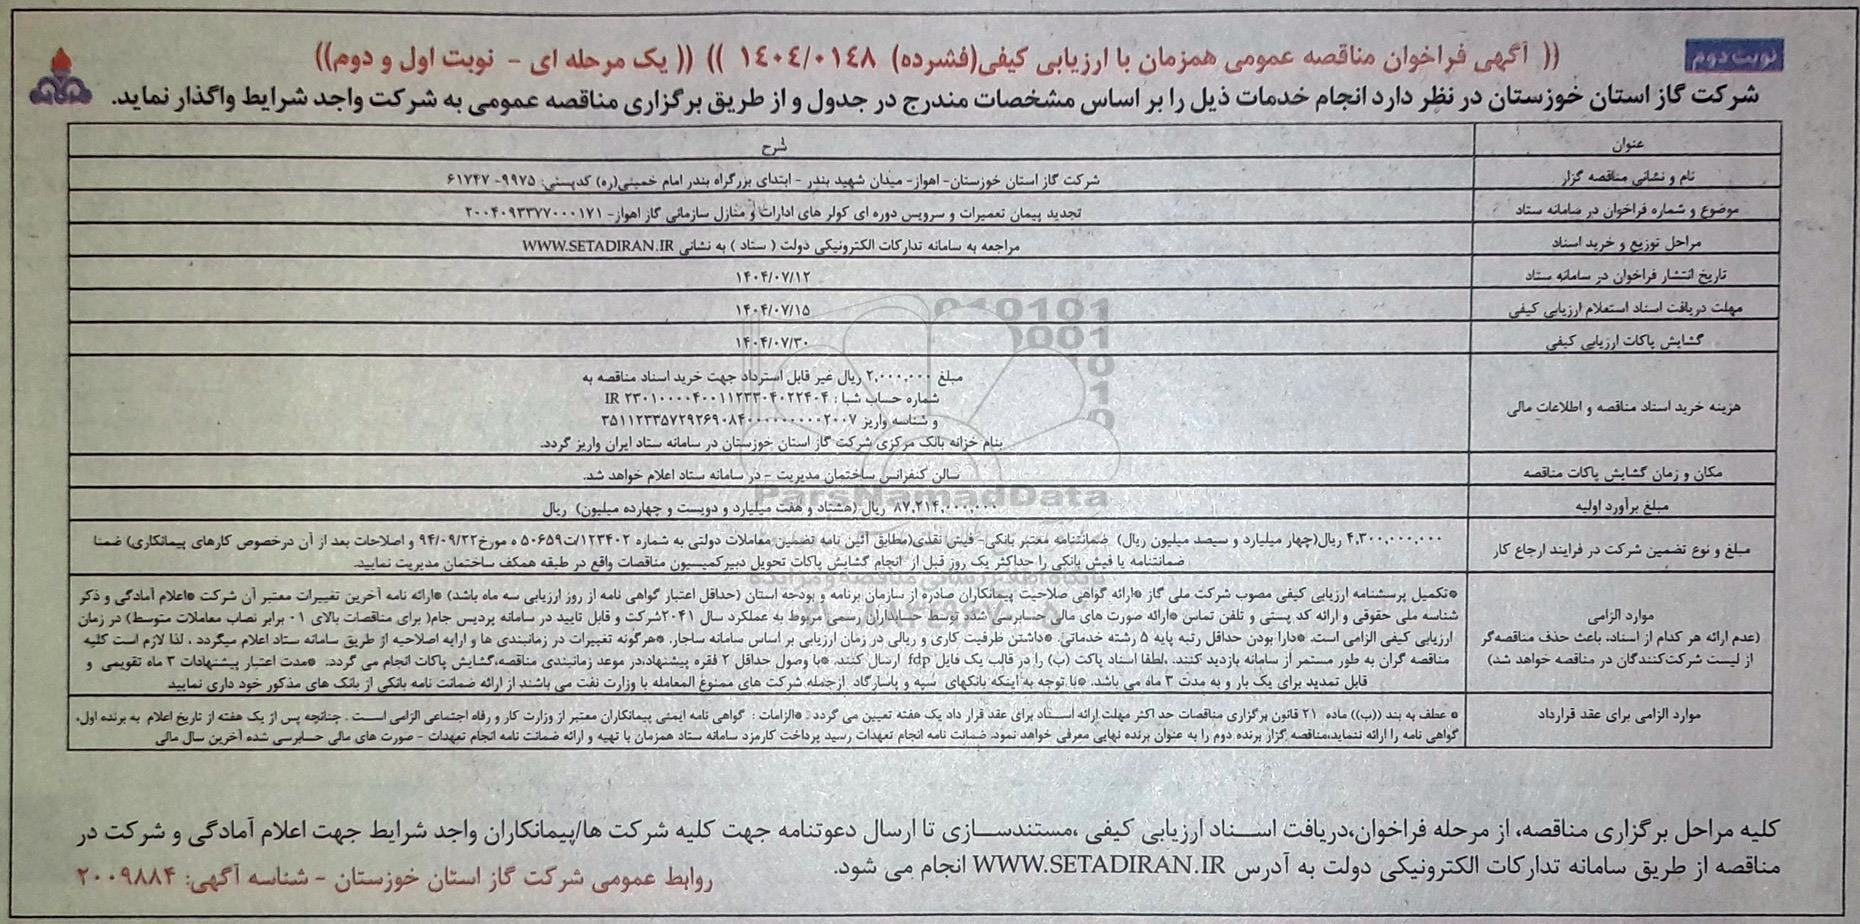 نوبت دوم
(( آگهی فراخوان مناقصه عمومی همزمان با ارزیابی کیفی(فشرده) ۱۴۰۴/۰۱۴۸ )) (( یک مرحله ای - نوبت اول و دوم))
شرکت گاز استان خوزستان در نظر دارد انجام خدمات ذیل را بر اساس مشخصات مندرج در جدول و از طریق برگزاری مناقصه عمومی به شرکت واجد شرایط واگذار نماید.
عنوان شرح
نام و نشانی مناقصه گزار شرکت گاز استان خوزستان- اهواز- میدان شهید بندر - ابتدای بزرگراه بندر امام خمینی(ره) کدپستی: ۹۹۷۵- ۶۱۷۴۷
موضوع و شماره فراخوان در سامانه ستاد تجدید پیمان تعمیرات و سرویس دوره ای کولر های ادارات و منازل سازمانی گاز اهواز- ۲۰۰۴۰۹۳۳۷۷۰۰۰۱۷۱
مراحل توزیع و خرید اسناد مراجعه به سامانه تدارکات الکترونیکی دولت ( ستاد ) به نشانی WWW.SETADIRAN.IR
تاریخ انتشار فراخوان در سامانه ستاد ۱۴۰۴/۰۷/۱۲
مهلت دریافت اسناد استعلام ارزیابی کیفی ۱۴۰۴/۰۷/۱۵
گشایش پاکات ارزیابی کیفی ۱۴۰۴/۰۷/۳۰
هزینه خرید اسناد مناقصه و اطلاعات مالی
مبلغ ۲,۰۰۰,۰۰۰ ریال غیر قابل استرداد جهت خرید اسناد مناقصه به
شماره حساب شبا : IR ۲۳۰۱۰۰۰۰۴۰۰۱۱۲۳۳۰۴۰۲۲۴۰۴
و شناسه واریز ۳۵۱۱۲۳۳۵۷۲۹۲۶۹۰۸۴۰۰۰۰۰۰۰۰۰۰۲۰۰۷
بنام خزانه بانک مرکزی شرکت گاز استان خوزستان در سامانه ستاد ایران واریز گردد.
مکان و زمان گشایش پاکات مناقصه سالن کنفرانس ساختمان مدیریت - در سامانه ستاد اعلام خواهد شد.
مبلغ برآورد اولیه ۸۷,۲۱۴,۰۰۰,۰۰۰ ریال (هشتاد و هفت میلیارد و دویست و چهارده میلیون) ریال
مبلغ و نوع تضمین شرکت در فرایند ارجاع کار
۴,۳۰۰,۰۰۰,۰۰۰ ریال(چهار میلیارد و سیصد میلیون ریال) ضمانتنامه معتبر بانکی- فیش نقدی(مطابق آئین نامه تضمین معاملات دولتی به شماره ۱۲۳۴۰۲/ت۵۰۶۵۹ ه مورخ۹۴/۰۹/۲۲ و اصلاحات بعد از آن درخصوص کارهای پیمانکاری) ضمنا
ضمانتنامه یا فیش بانکی را حداکثر یک روز قبل از انجام گشایش پاکات تحویل دبیرکمیسیون مناقصات واقع در طبقه همکف ساختمان مدیریت نمایید.
موارد الزامی
(عدم ارائه هر کدام از اسناد، باعث حذف مناقصه‌گر
از لیست شرکت‌کنندگان در مناقصه خواهد شد)
*تکمیل پرسشنامه ارزیابی کیفی مصوب شرکت ملی گاز *ارائه گواهی صلاحیت پیمانکاران صادره از سازمان برنامه و بودجه استان (حداقل اعتبار گواهی نامه از روز ارزیابی سه ماه باشد) *ارائه نامه آخرین تغییرات معتبر آن شرکت *اعلام آمادگی و ذکر
شناسه ملی حقوقی و ارائه کد پستی و تلفن تماس *ارائه صورت های مالی حسابرسی شده توسط حسابداران رسمی مربوط به عملکرد سال ۲۰۴۱شرکت و قابل تایید در سامانه پردیس جام( برای مناقصات بالای ۰۱ برابر نصاب معاملات متوسط) در زمان
ارزیابی کیفی الزامی است. *دارا بودن حداقل رتبه پایه ۵ رشته خدماتی. *داشتن ظرفیت کاری و ریالی در زمان ارزیابی بر اساس سامانه ساجار. *هرگونه تغییرات در زمانبندی ها و ارایه اصلاحیه از طریق سامانه ستاد اعلام میگردد ، لذا لازم است کلیه
مناقصه گران به طور مستمر از سامانه بازدید کنند. .لطفا اسناد پاکت (ب) را در قالب یک فایل fdp ارسال کنند. *با وصول حداقل ۲ فقره پیشنهاد،در موعد زمانبندی مناقصه،گشایش پاکات انجام می گردد. *مدت اعتبار پیشنهادات ۳ ماه تقویمی و
قابل تمدید برای یک بار و به مدت ۳ ماه می باشد. *با توجه به اینکه بانکهای سپه و پاسارگاد ازجمله شرکت های ممنوع المعامله با وزارت نفت می باشند از ارائه ضمانت نامه بانکی از بانک های مذکور خود داری نمایید
موارد الزامی برای عقد قرارداد
* عطف به بند ((ب)) ماده ۲۱ قانون برگزاری مناقصات حد اکثر مهلت ارائه اسناد برای عقد قرار داد یک هفته تعیین می گردد . *الزامات : گواهی نامه ایمنی پیمانکاران معتبر از وزارت کار و رفاه اجتماعی الزامی است . چنانچه پس از یک هفته از تاریخ اعلام به برنده اول،
گواهی نامه را ارائه ننماید،مناقصه گزار برنده دوم را به عنوان برنده نهایی معرفی خواهد نمود. ضمانت نامه انجام تعهدات رسید پرداخت کارمزد سامانه ستاد همزمان با تهیه و ارائه ضمانت نامه انجام تعهدات - صورت های مالی حسابرسی شده آخرین سال مالی
کلیه مراحل برگزاری مناقصه، از مرحله فراخوان،دریافت اسناد ارزیابی کیفی ،مستندسازی تا ارسال دعوتنامه جهت کلیه شرکت ها/پیمانکاران واجد شرایط جهت اعلام آمادگی و شرکت در
مناقصه از طریق سامانه تدارکات الکترونیکی دولت به آدرس WWW.SETADIRAN.IR انجام می شود.
روابط عمومی شرکت گاز استان خوزستان - شناسه آگهی: ۲۰۰۹۸۸۴
ParsNamadData
پایگاه اطلاع رسانی مناقصه و مزایده